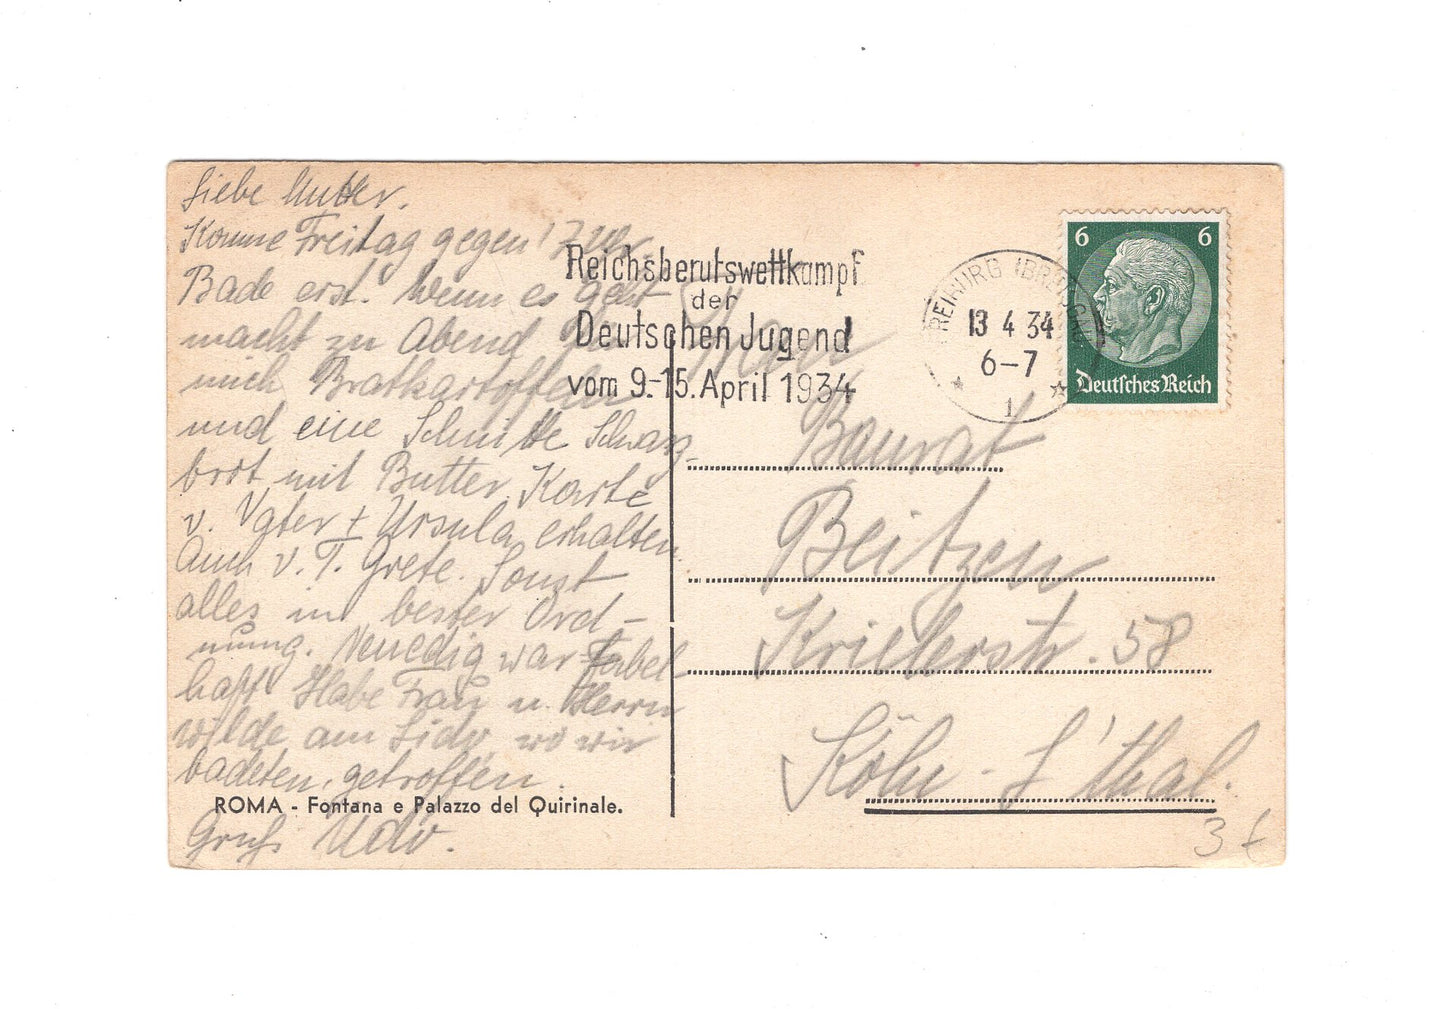 Liebe Mutter.
Komme Freitag gegen 17 Uhr.
Bade erst. Wenn es geht
macht zu Abend für
mich Bratkartoffeln
und eine Schnitte Schwarz-
brot mit Butter. Karte
v. Vater + Ursula erhalten.
Auch v. T. Grete. Sonst
alles in bester Ord-
nung. Venedig war fabel-
haft. Habe Frau u. Herrn
Wilde am Lido, wo wir
badeten, getroffen.
Gruß Udo.
ROMA - Fontana e Palazzo del Quirinale.
Reichsberufswettkampf
der
Deutschen Jugend
vom 9.-15. April 1934
FREIBURG (BREISG.)
13 4 34
6-7
1
6 6
Deutsches Reich
Frau
Baurat
Beitzen
Krielerstr. 58
Köln - L'thal.
3 €